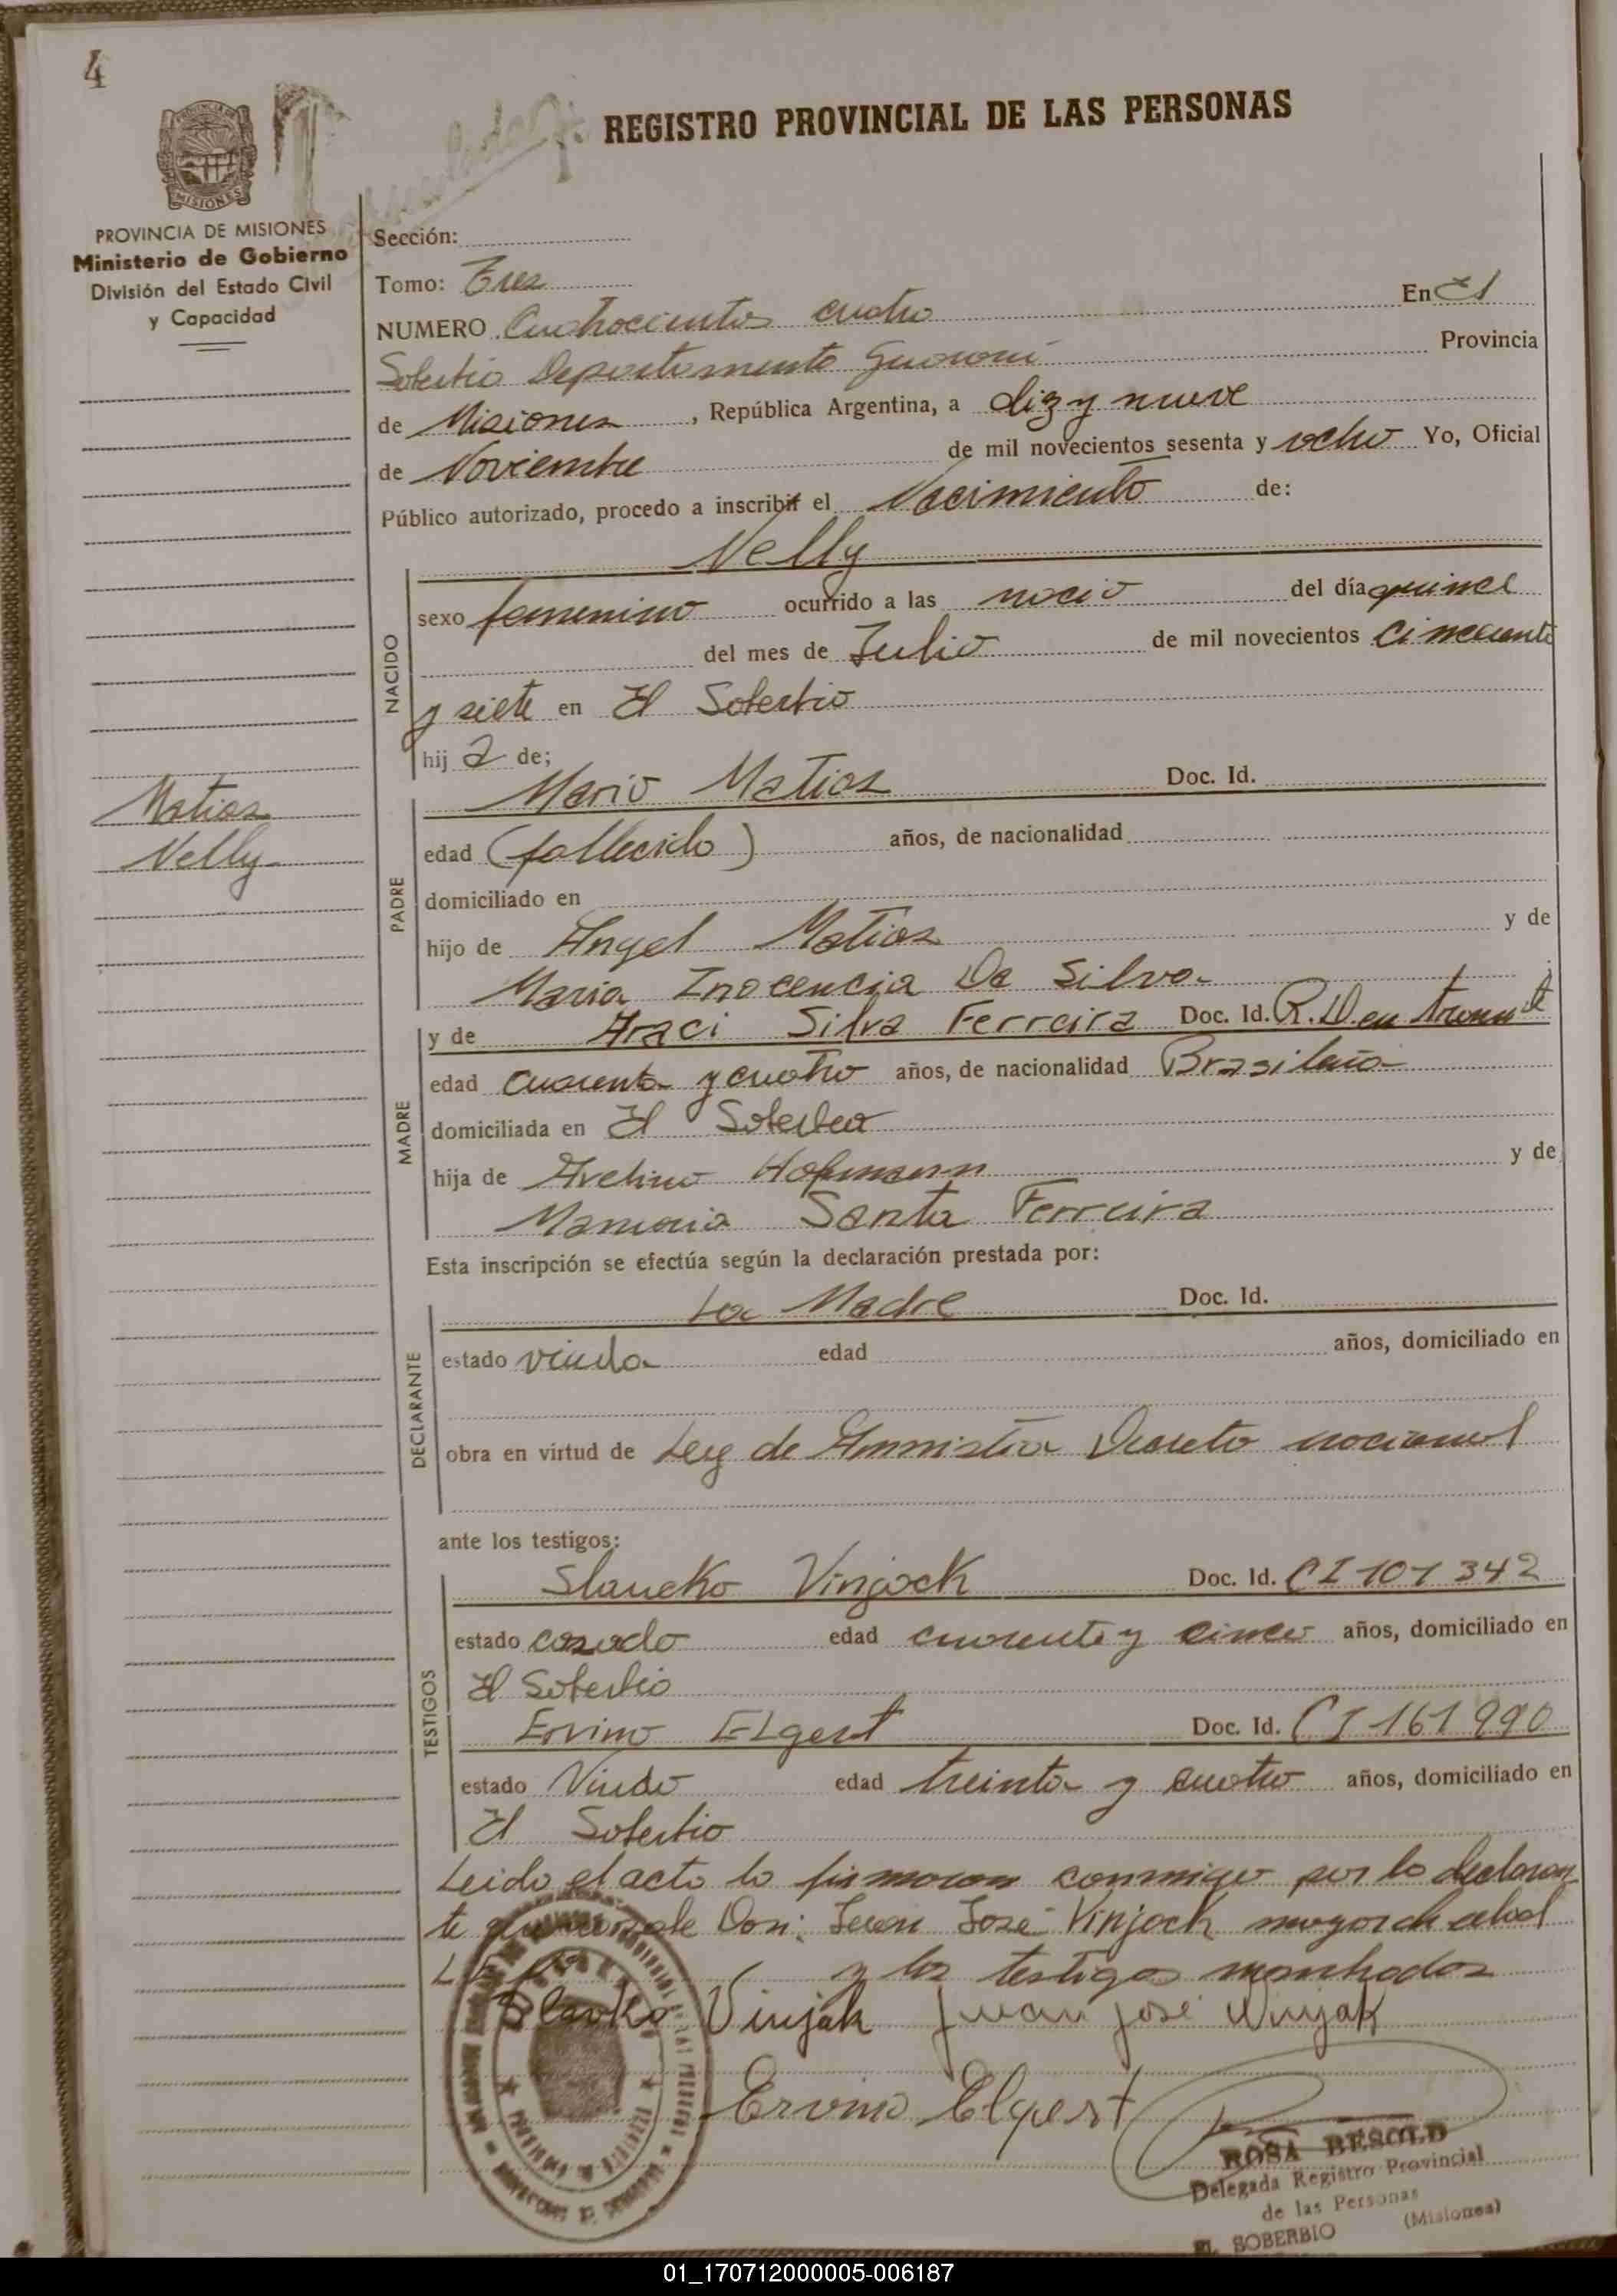 4
REGISTRO PROVINCIAL DE LAS PERSONAS
MISIONES
PROVINCIA DE MISIONES
Ministerio de Gobierno
División del Estado Civil
y Capacidad
Sección:
Tomo: Tres
NUMERO Cuatrocientos cuatro En El
Soberbio Departamento Guaraní Provincia
de Misiones, República Argentina, a diz y nueve
de Noviembre de mil novecientos sesenta y ocho Yo, Oficial
Público autorizado, procedo a inscribir el Nacimiento de:
Nelly
NACIDO
sexo femenino ocurrido a las nacio del día quince
del mes de Julio de mil novecientos cincuenta
y siete en El Soberbio
hij a de;
Matias
Nelly
PADRE
Mario Matias Doc. Id.
edad (fallecido) años, de nacionalidad
domiciliado en
hijo de Angel Matias y de
Maria Inocencia Da Silva
MADRE
y de Araci Silva Ferreira Doc. Id. R.D. en tramite
edad cuarenta y cuatro años, de nacionalidad Brasileña
domiciliada en El Soberbio
hija de Avelino Hofmann y de
Santa Ferreira
Esta inscripción se efectúa según la declaración prestada por:
DECLARANTE
La Madre Doc. Id.
estado viuda edad años, domiciliado en
obra en virtud de Ley de Amnistia Decreto nacional
ante los testigos:
TESTIGOS
Slaucko Vinjock Doc. Id. CI 101 342
estado casado edad cuarenta y cinco años, domiciliado en
El Soberbio
Ervino Elgert Doc. Id. CI 161 990
estado Viudo edad treinta y cuatro años, domiciliado en
El Soberbio
Leido el acta la firmaron conmigo por la declaran
te Don: Juan José Vinjock mayor de edad
y los testigos
Slavko Vinjak Juan José Vinjak
Ervino Elgert
ROSA BESOLD
Delegada Registro Provincial
de las Personas
EL SOBERBIO (Misiones)
01_170712000005-006187